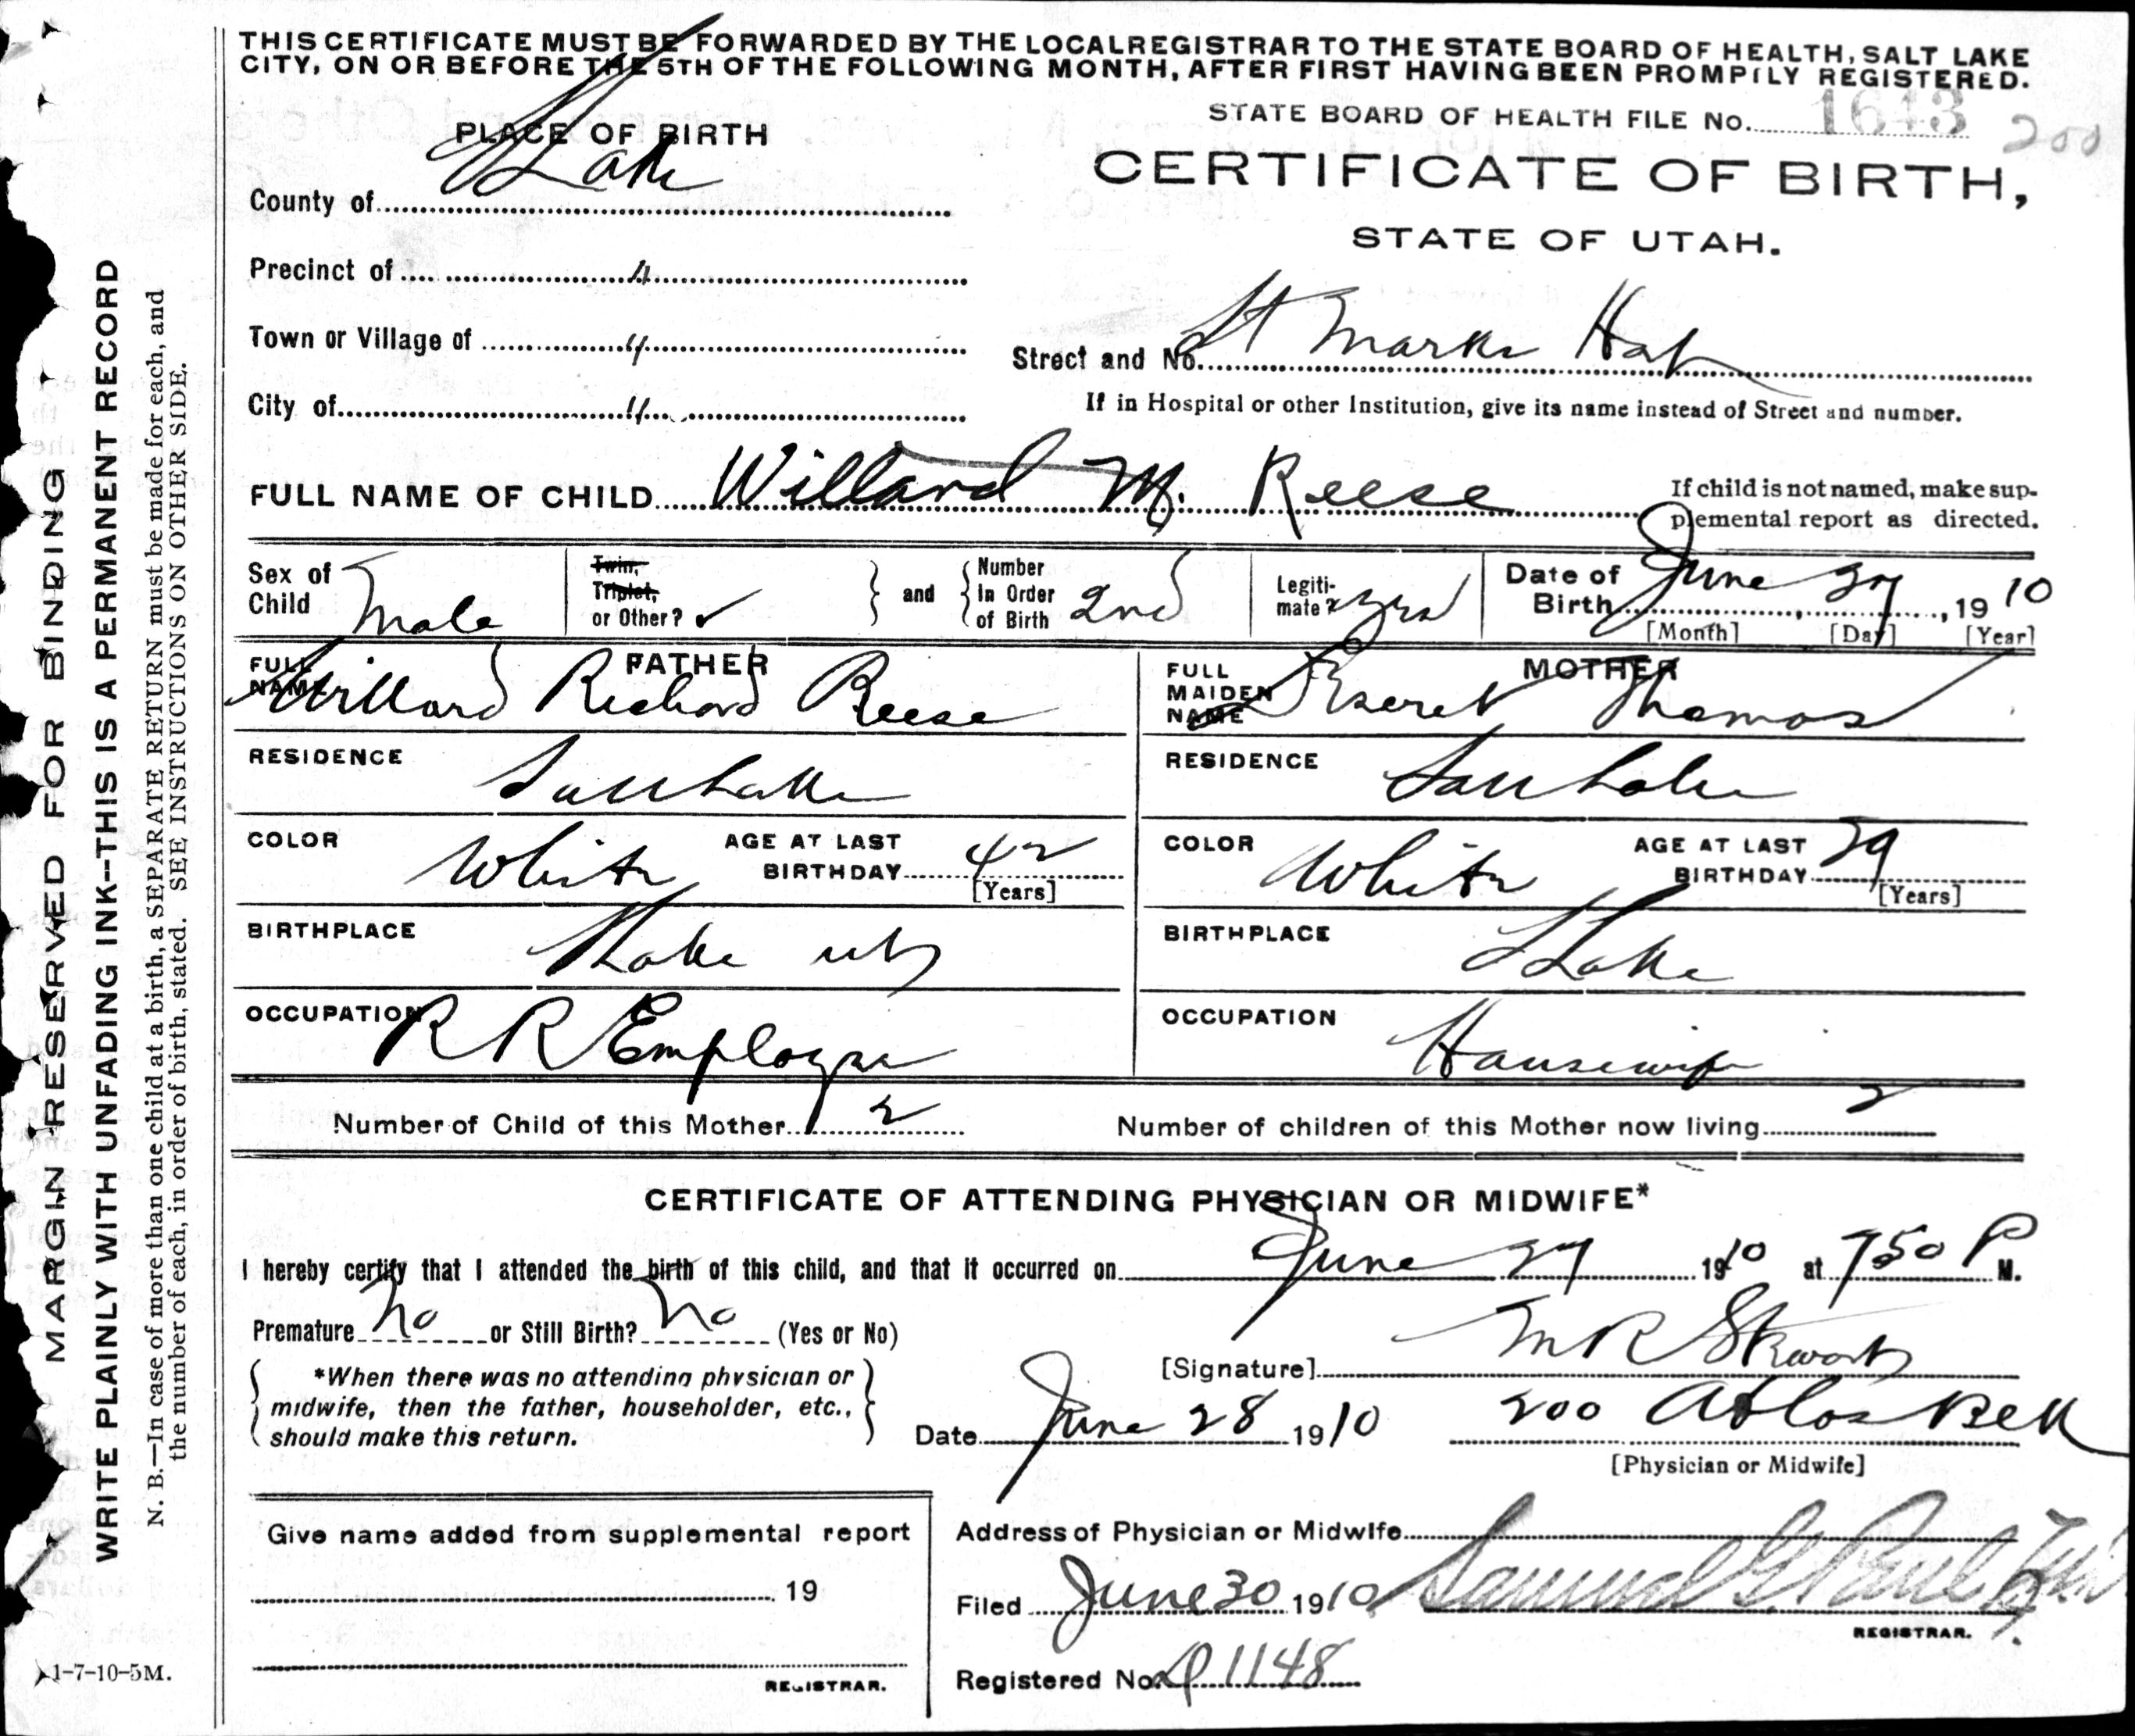 THIS CERTIFICATE MUST BE FORWARDED BY THE LOCAL REGISTRAR TO THE STATE BOARD OF HEALTH, SALT LAKE
CITY, ON OR BEFORE THE 5TH OF THE FOLLOWING MONTH, AFTER FIRST HAVING BEEN PROMPTLY REGISTERED.
STATE BOARD OF HEALTH FILE No. 1643 200
PLACE OF BIRTH
CERTIFICATE OF BIRTH,
STATE OF UTAH.
County of S Lake
Precinct of "
Town or Village of "
Street and No. St Marks Hosp
City of "
If in Hospital or other Institution, give its name instead of Street and number.
FULL NAME OF CHILD Willard M. Reese
If child is not named, make sup-
plemental report as directed.
Sex of Child Male
Twin, Triplet, or Other? ✓ and Number In Order of Birth 2nd
Legiti-mate?
Date of Birth June 27, 1910
[Month] [Day] [Year]
FATHER
FULL NAME Willard Richard Reese
MOTHER
FULL MAIDEN NAME Thomas
RESIDENCE Salt Lake
RESIDENCE Salt Lake
COLOR White AGE AT LAST BIRTHDAY 42 [Years]
COLOR White AGE AT LAST BIRTHDAY 39 [Years]
BIRTHPLACE S Lake
BIRTHPLACE S Lake
OCCUPATION R R Employee
OCCUPATION Housewife
Number of Child of this Mother 2
Number of children of this Mother now living 2
CERTIFICATE OF ATTENDING PHYSICIAN OR MIDWIFE*
I hereby certify that I attended the birth of this child, and that it occurred on June 27 1910 at 750 P M.
Premature No or Still Birth? No (Yes or No)
*When there was no attending physician or
midwife, then the father, householder, etc.,
should make this return.
[Signature] M R Stewart
Date June 28 1910
200 Atlas Blk
[Physician or Midwife]
Give name added from supplemental report
19
REGISTRAR.
Address of Physician or Midwife
Filed June 30 1910 Samuel G Paul
REGISTRAR.
Registered No. D 1148
1-7-10-5M.
MARGIN RESERVED FOR BINDING
WRITE PLAINLY WITH UNFADING INK--THIS IS A PERMANENT RECORD
N. B.—In case of more than one child at a birth, a SEPARATE RETURN must be made for each, and
the number of each, in order of birth, stated. SEE INSTRUCTIONS ON OTHER SIDE.